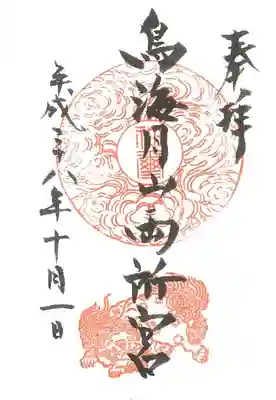 奉拝
鳥海月山両所宮
平成二十八年十月一日